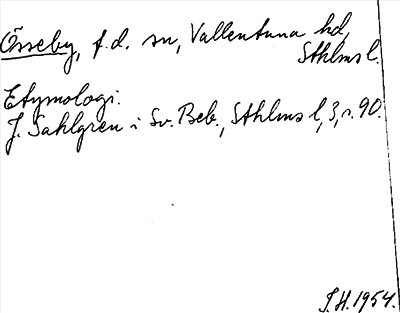 Össeby, f.d. sn, Vallentuna hd,
Sthlms l.
Etymologi.
J. Sahlgren i Sv. Beb., Sthlms l, 3, s. 90.
J.H. 1954.